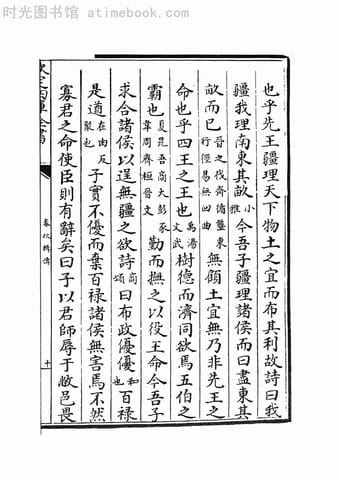 时光图书馆 atimebook.com
也乎先王疆理天下物土之宜而布其利故詩曰我
疆我理南東其畝小雅今吾子疆理諸侯而曰盡東其
畝而已晉之伐齊循壟東行徑易無凹曲無顧土宜無乃非先王之
命也乎四王之王也禹湯文武樹德而濟同欲焉五伯之
霸也夏昆吾商大彭豕韋周齊桓晉文勤而撫之以役王命今吾子
求合諸侯以逞無疆之欲詩商頌曰布政優優和也百祿
是遒在由反聚也子實不優而棄百祿諸侯無害焉不然
寡君之命使臣則有辭矣曰子以君師辱于敝邑畏
欽定四庫全書
春秋輯傳
十